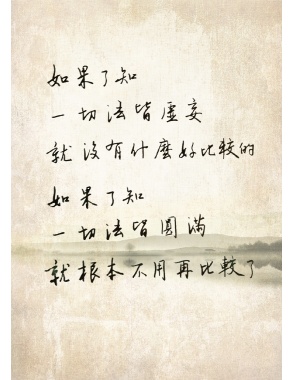 如果了知
一切法皆虛妄
就沒有什麼好比較的
如果了知
一切法皆圓滿
就根本不用再比較了